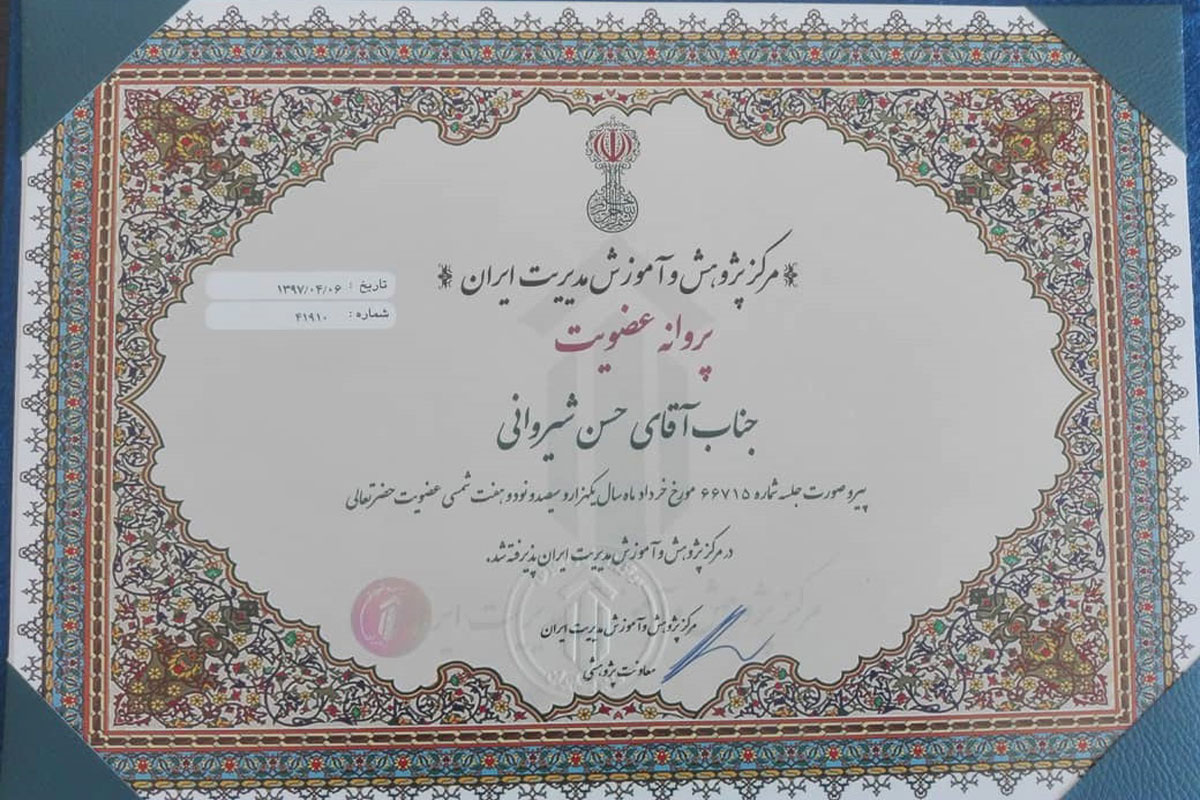 مرکز پژوهش و آموزش مدیریت ایران
تاریخ : ۱۳۹۷/۰۴/۰۶
شماره : ۴۱۹۱۰
پروانه عضویت
جناب آقای حسن شیروانی
پیرو صورت جلسه شماره ۶۶۷۱۵ مورخ خرداد ماه سال یکهزار و سیصد و نود و هفت شمسی عضویت حضرتعالی
در مرکز پژوهش و آموزش مدیریت ایران پذیرفته شد.
مرکز پژوهش و آموزش مدیریت ایران
معاونت پژوهشی